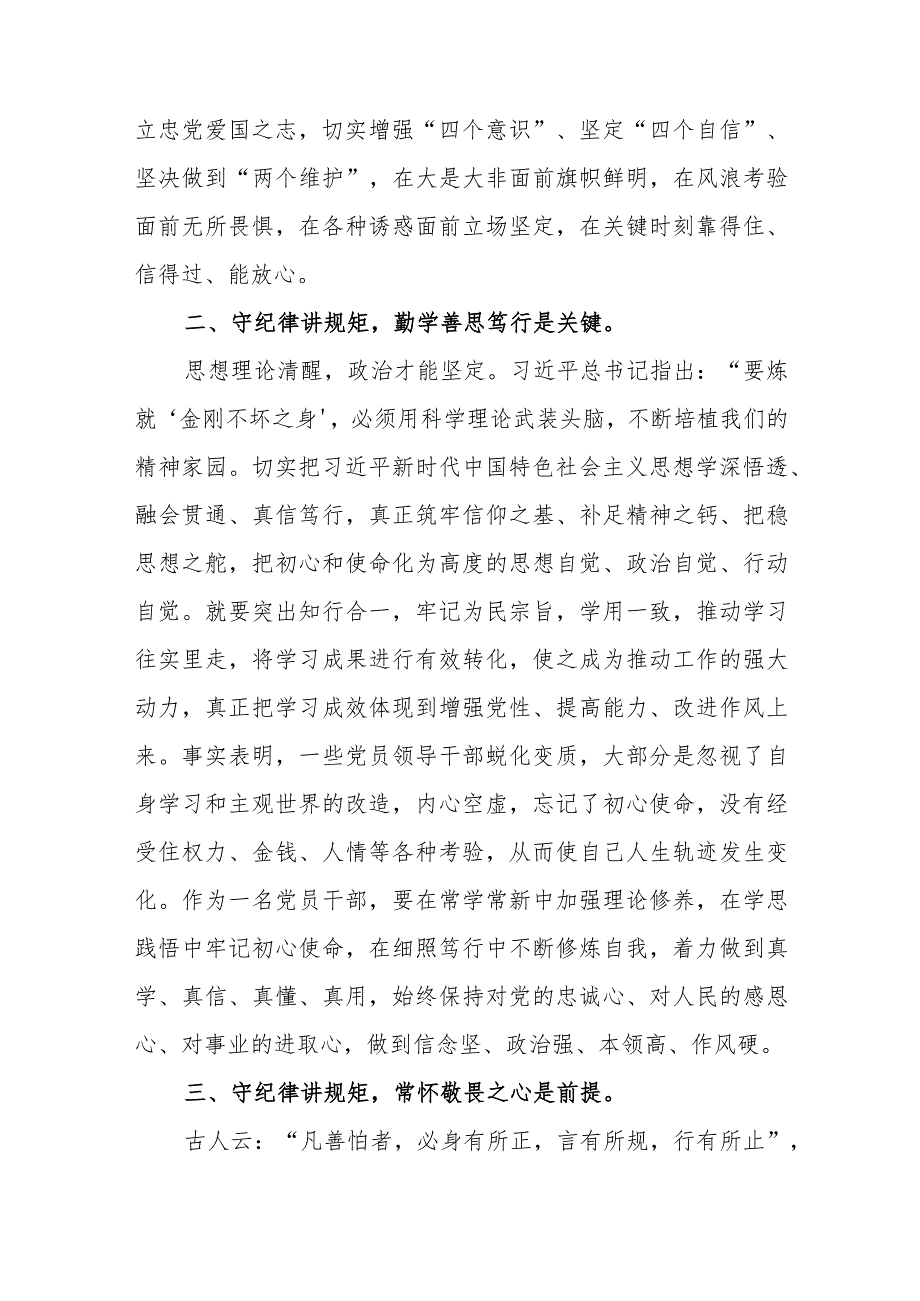 立忠党爱国之志，切实增强“四个意识”、坚定“四个自信”、
坚决做到“两个维护”，在大是大非面前旗帜鲜明，在风浪考验
面前无所畏惧，在各种诱惑面前立场坚定，在关键时刻靠得住、
信得过、能放心。
二、守纪律讲规矩，勤学善思笃行是关键。
思想理论清醒，政治才能坚定。习近平总书记指出：“要炼
就‘金刚不坏之身'，必须用科学理论武装头脑，不断培植我们的
精神家园。切实把习近平新时代中国特色社会主义思想学深悟透、
融会贯通、真信笃行，真正筑牢信仰之基、补足精神之钙、把稳
思想之舵，把初心和使命化为高度的思想自觉、政治自觉、行动
自觉。就要突出知行合一，牢记为民宗旨，学用一致，推动学习
往实里走，将学习成果进行有效转化，使之成为推动工作的强大
动力，真正把学习成效体现到增强党性、提高能力、改进作风上
来。事实表明，一些党员领导干部蜕化变质，大部分是忽视了自
身学习和主观世界的改造，内心空虚，忘记了初心使命，没有经
受住权力、金钱、人情等各种考验，从而使自己人生轨迹发生变
化。作为一名党员干部，要在常学常新中加强理论修养，在学思
践悟中牢记初心使命，在细照笃行中不断修炼自我，着力做到真
学、真信、真懂、真用，始终保持对党的忠诚心、对人民的感恩
心、对事业的进取心，做到信念坚、政治强、本领高、作风硬。
三、守纪律讲规矩，常怀敬畏之心是前提。
古人云：“凡善怕者，必身有所正，言有所规，行有所止”，